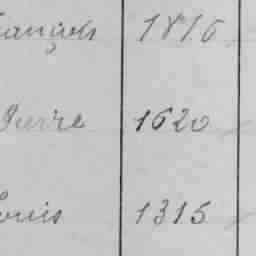 ançois 1816
Pierre 1620
Louis 1315